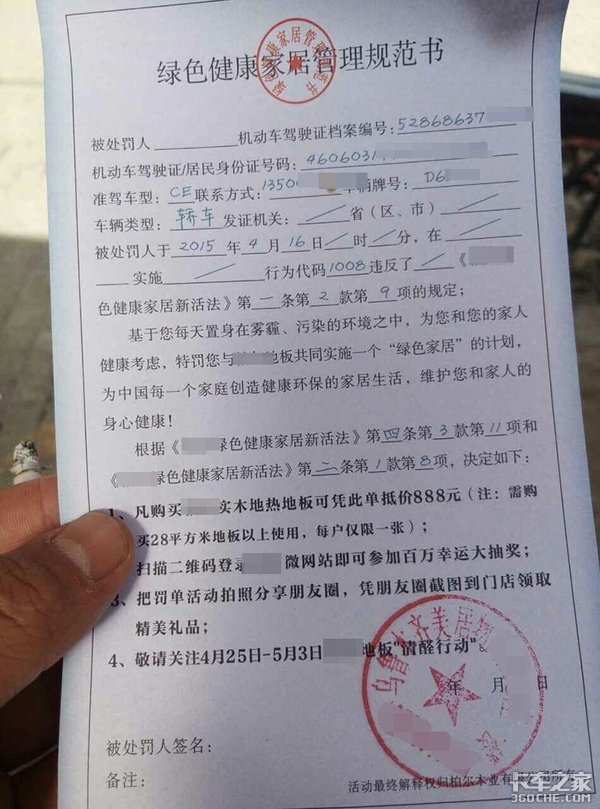 绿色健康家居管理规范书
被处罚人 机动车驾驶证档案编号:52868637
机动车驾驶证/居民身份证号码:4606031
准驾车型:CE 联系方式:13500 车辆牌号:D6
车辆类型:轿车 发证机关:／省(区、市)／
被处罚人于2015年4月16日／时／分,在／
实施／行为代码1008违反了／《
色健康家居新活法》第一条第2款第9项的规定;
基于您每天置身在雾霾、污染的环境之中,为您和您的家人
健康考虑,特罚您与 地板共同实施一个“绿色家居”的计划,
为中国每一个家庭创造健康环保的家居生活,维护您和家人的
身心健康!
根据《 绿色健康家居新活法》第四条第3款第11项和
《 绿色健康家居新活法》第二条第1款第8项,决定如下:
1、凡购买 实木地热地板可凭此单抵价888元(注:需购
买28平方米地板以上使用,每户仅限一张);
扫描二维码登录 微网站即可参加百万幸运大抽奖;
3、把罚单活动拍照分享朋友圈,凭朋友圈截图到门店领取
精美礼品;
4、敬请关注4月25日-5月3日 地板"清醛行动"。
乌鲁木齐美居
年 月 日
被处罚人签名:
备注:
活动最终解释权归柏尔木业有限公司所有
卡车之家
360CHE.COM